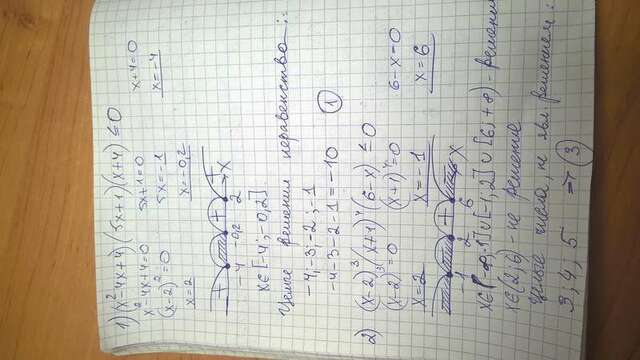 1) (x²-4x+4)(5x+1)(x+4) ≤ 0
x²-4x+4=0 5x+1=0 x+4=0
(x-2)²=0 5x=-1 x=-4
x=2 x=-0,2
+ + + x
-4 -0,2 2
x∈[-4;-0,2]
Целые решения неравенства:
-4;-3;-2;-1
-4-3-2-1=-10 1
2) (x-2)³(x+1)⁴(6-x) ≤ 0
(x-2)³=0 (x+1)⁴=0 6-x=0
x=2 x=-1 x=6
+ x
-1 2 6
x∈(-∞;-1]∪[-1;2]∪[6;+∞) - решения
x∈(2;6) - не решения
Целые числа, не явл. решением:
3; 4; 5 → 3